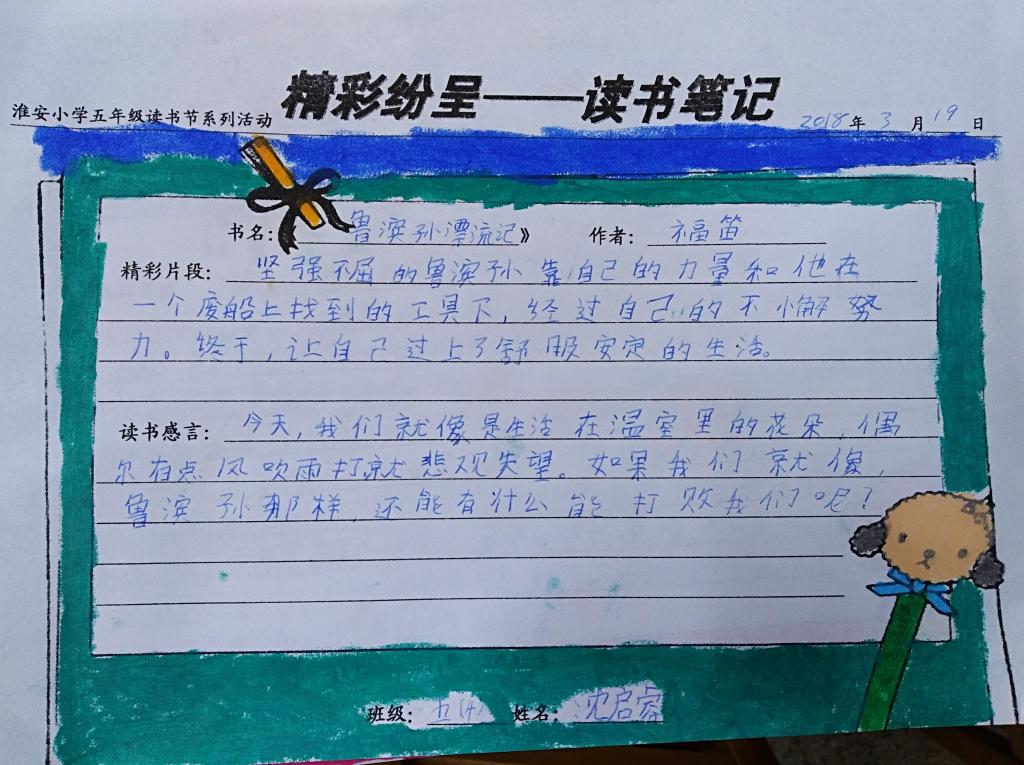 精彩纷呈——读书笔记
淮安小学五年级读书节系列活动
2018年3月19日
书名：鲁滨孙漂流记》 作者：福笛
精彩片段：坚强不屈的鲁滨孙靠自己的力量和他在
一个废船上找到的工具下，经过自己的不懈努
力。终于，让自己过上了舒服安定的生活。
读书感言：今天，我们就像是生活在温室里的花朵，偶
尔有点风吹雨打就悲观失望。如果我们就像，
鲁滨孙那样，还能有什么能打败我们呢？
班级：五 姓名：沈启蓉